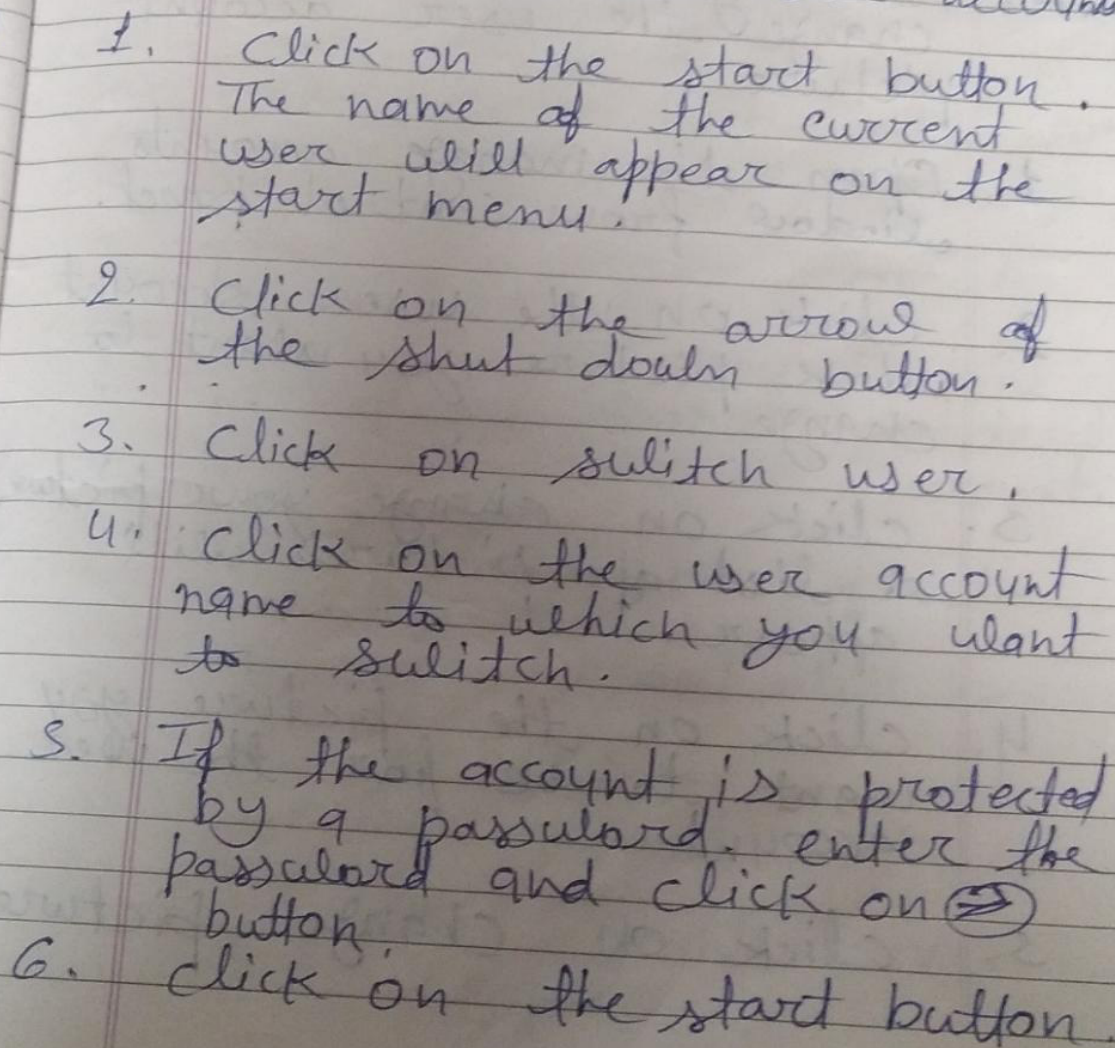 1. Click on the start button.
The name of the current
user will appear on the
start menu.
2. Click on the arrow of
the shut down button.
3. Click on switch user.
4. Click on the user account
name to which you want
to switch.
5. If the account is protected
by a password. enter the
password and click on ➔
button.
6. Click on the start button